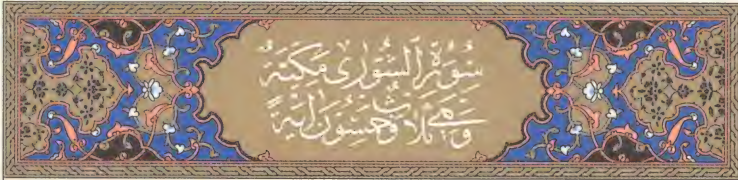 سُورَةُ الشُّورٰى مَكِّيَّةٌ
وَهِيَ ثَلَاثٌ وَخَمْسُونَ اٰيَةً